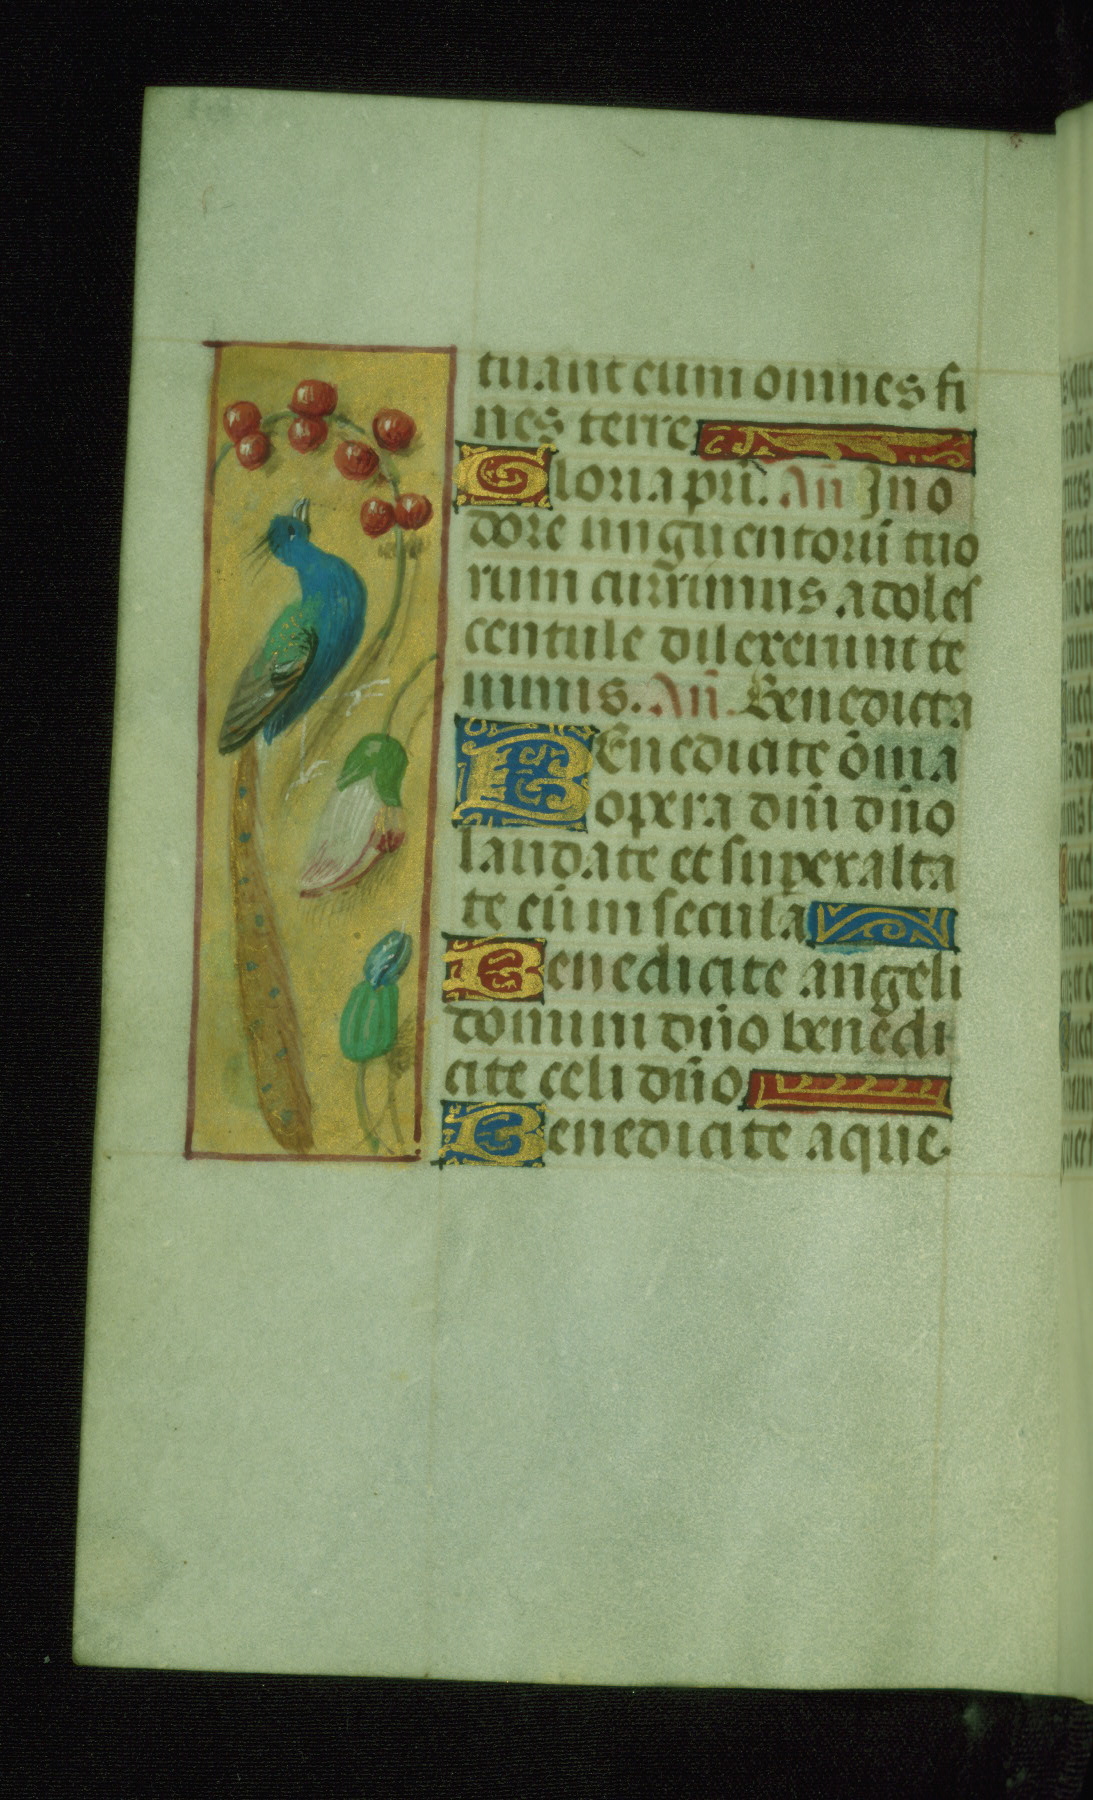 tuant eum omnes fi
nes terre
Gloria pri̅. An̅ In o
dore unguentoru̅ tuo
rum currimus adoles
centule dilexerunt te
nimis. An̅. Benedicta
BEnedicite o̅ia
opera dn̅i dn̅o
laudate et superexalta
te eu̅ in secula
Benedicite angeli
domini dn̅o benedi
cite celi dn̅o
Benedicite aque